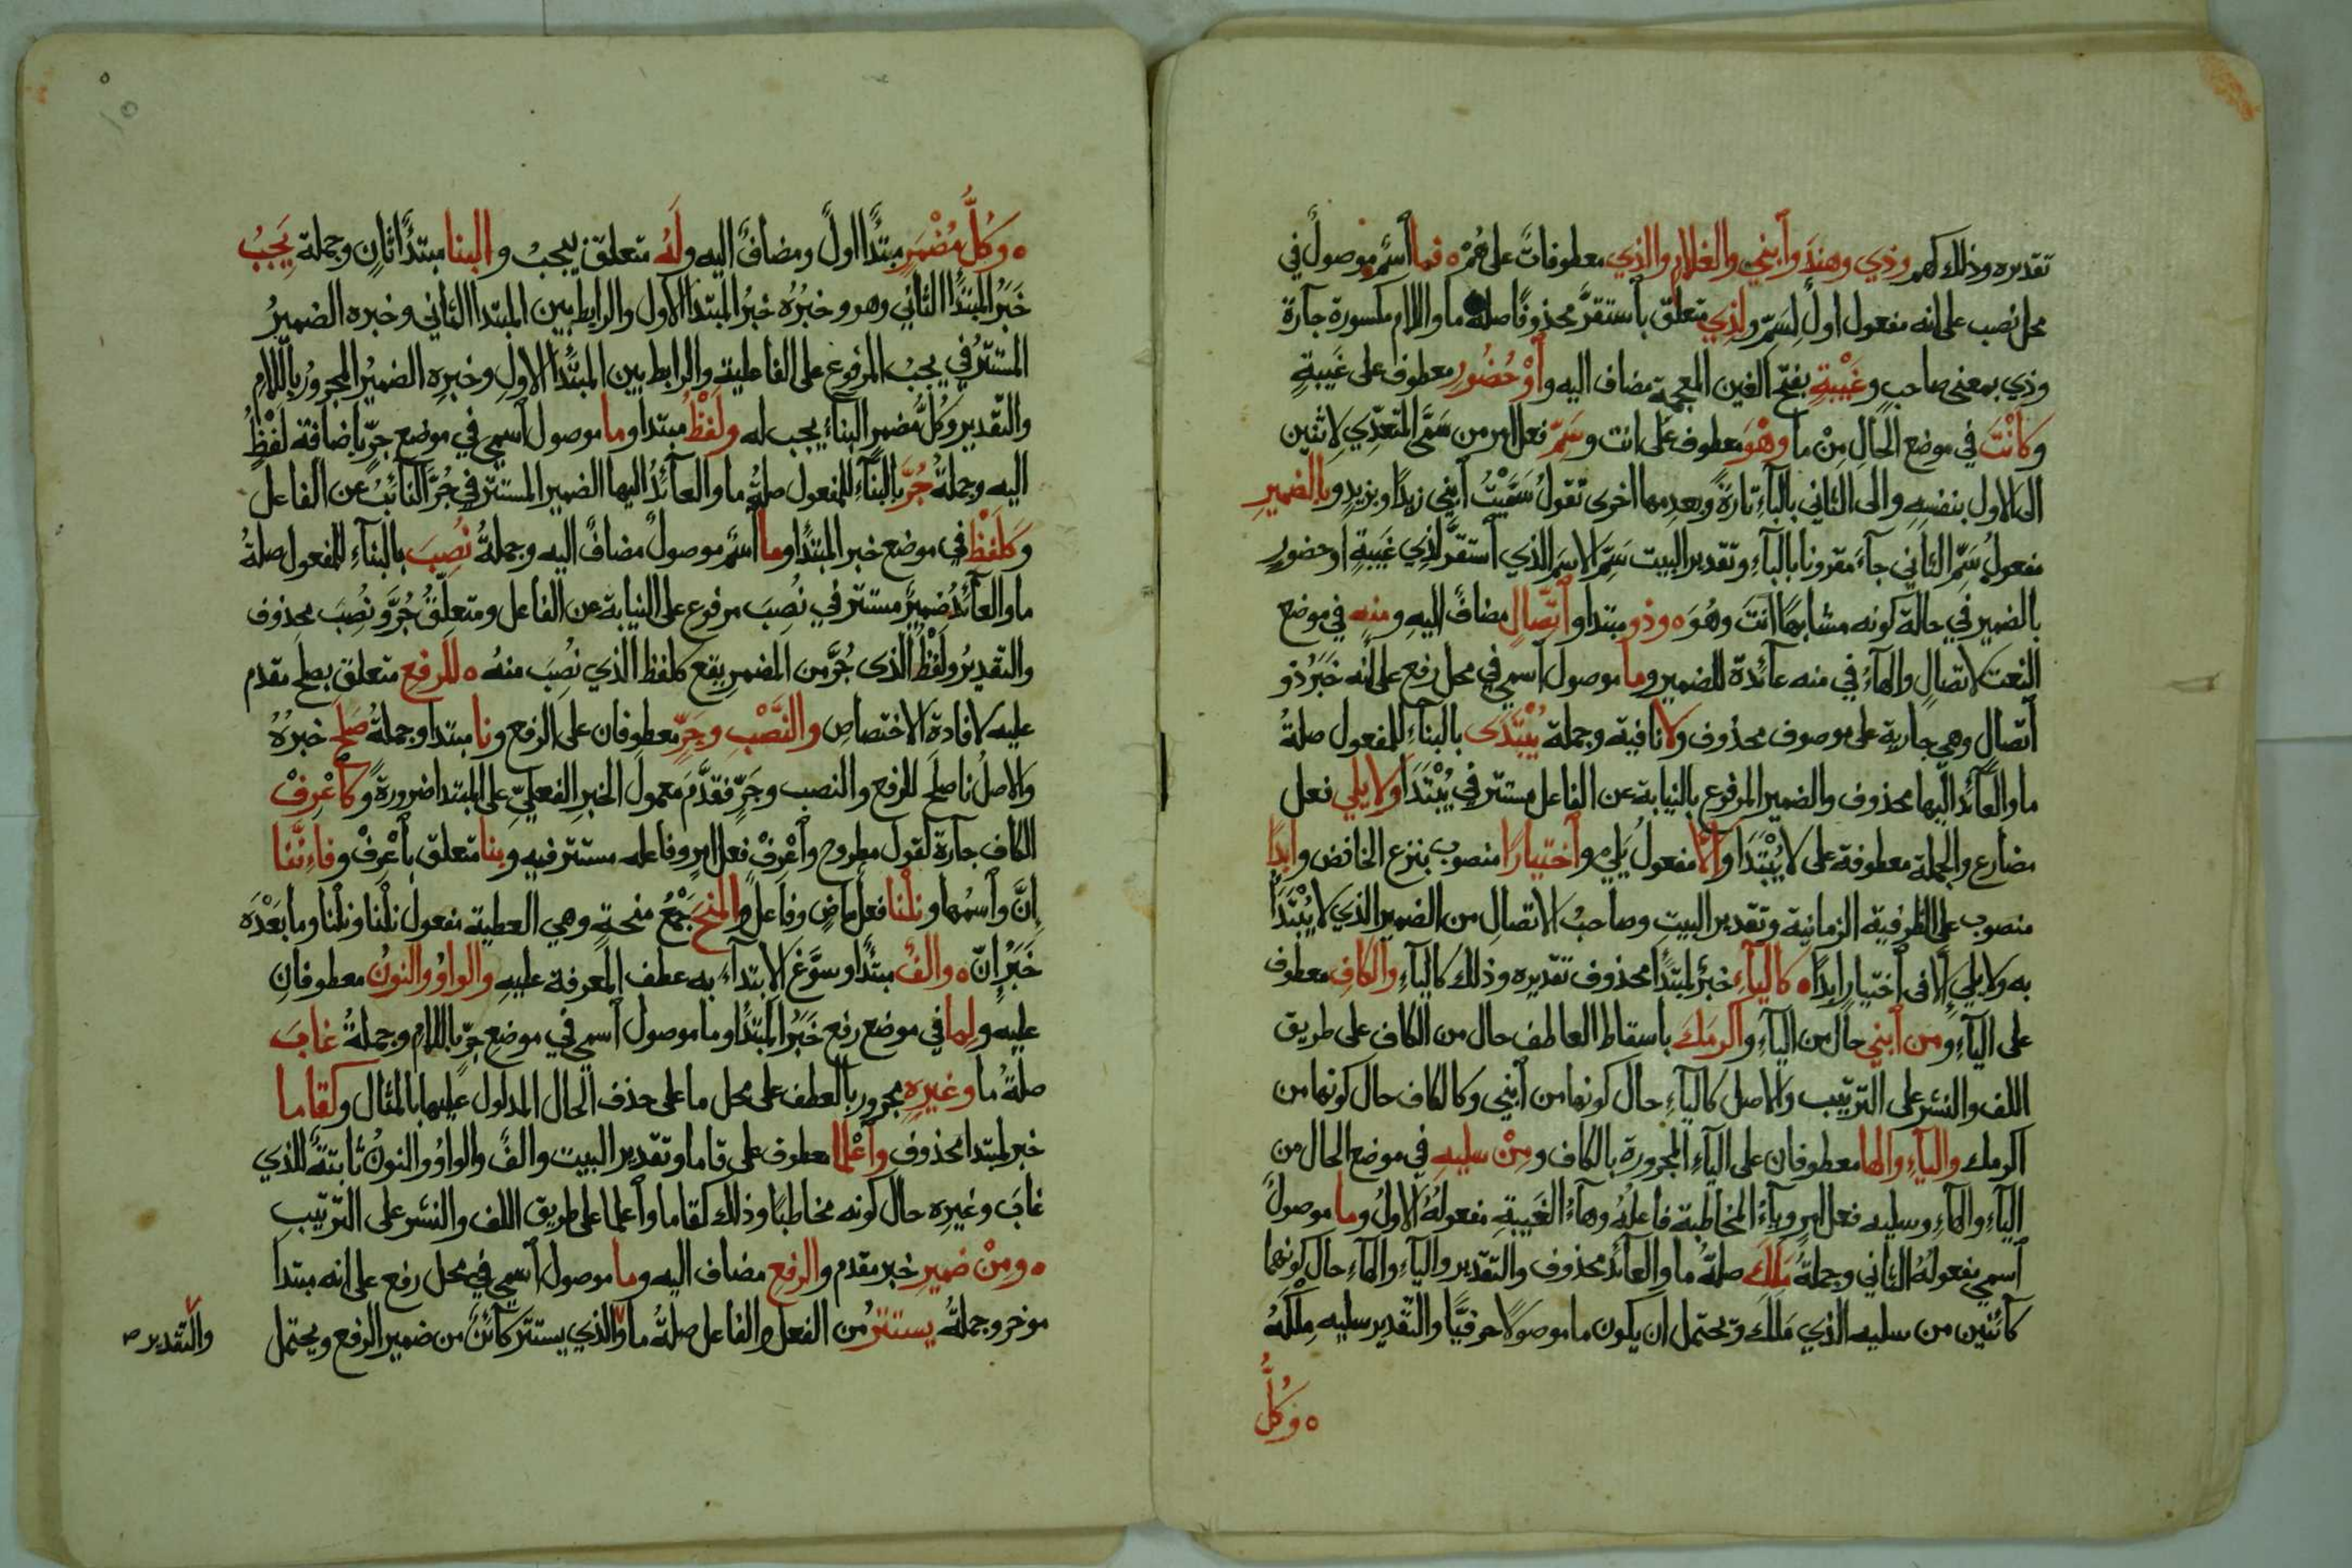 تقديره وذلك كهم وذي وهند وأبني والغلام والذي معطوفات على هُمْ ٥ فما اسم موصول في
محل نصب على انه مفعول اول لسَمّ ولذي متعلق بأستقرّ محذوفا صلة ما واللام مكسورة جارة
وذي بمعنى صاحب وغَيْبةٍ بفتح الغين المعجمة مضاف اليه وأوْ حُضُورٍ معطوف على غَيبةٍ
وكأنْتَ في موضع الحال مِنْ ما وهْوَ معطوف على انت وسَمّ فعل امر من سَمَّى المتعدّي لاثنين
الى الاول بنفسه والى الثاني بالبآء تارة وبعدمها اخرى تقول سَمَّيْتُ أبني زيدًا وبزيدٍ وبالضميرِ
مفعولُ سَمّ الثاني جآءَ مقرونا بالبآءِ وتقدير البيت سَمّ الاسمَ الذي أستقرّ لذي غَيبةٍ او حضور
بالضمير في حالة كونه مشابهًا أنتَ وهُوَ ٥ وذو مبتدا وأتّصالٍ مضافٌ اليهِ ومنه في موضع
النعت لاتصالٍ والهآءُ في منه عآئدة للضمير وما موصول أسمي في محل رفع على أنه خَبَرُ ذو
أتّصال وهي جارية على موصوف محذوف ولا نافية وجملة يُبْتَدَى بالبنآءِ للمفعول صلةُ
ما والعآئد اليها محذوف والضمير المرفوع بالنيابة عن الفاعل مستتر في يُبْتَدَا ولا يلي فعل
مضارع والجملة معطوفة على لا يُبْتَدَا وألّا مفعول يَلي وأختيارًا منصوب بنزع الخافض وابدًا
منصوب على الظرفية الزمانية وتقدير البيت وصاحبُ الاتصالِ من الضمير الذي لا يُبْتَدَأُ
به ولا يلي إلّا في أختيارٍ ابدًا ٥ كاليآءِ خبرُ لمبتدًا محذوف تقديره وذلك كاليآءِ والكافِ معطوف
على اليآءِ ومن أبني حال من اليآءِ وأكرمَكَ بأسقاط العاطف حال من الكاف على طريق
اللف والنشر على الترتيب والاصل كاليآءِ حال كونها من أبني وكالكاف حال كونها من
اكرمك واليآءِ والها معطوفان على اليآءِ المجرورة بالكاف ومِنْ سليهِ في موضع الحال من
اليآءِ والهآءِ وسليه فعل امر ويآءُ المخاطبة فاعلهُ وهآءُ الغَيبةِ مفعولهُ الاولُ وما موصولٌ
أسمي مفعولهُ الثاني وجملةُ مَلَكَ صلةُ ما والعآئد محذوف والتقدير واليآءِ والهآءِ حال كونهما
كآئنين من سليه الذي مَلَكَ ويحتمل ان يكون ما موصولا حرفيًّا والتقدير سليه مِلْكَهُ
٥ وَكُلُّ
٥ وَكُلُّ مُضْمَرٍ مبتدًا اولُ ومضافٌ اليه ولَهُ متعلق بيجبُ والبنا مبتدًا ثانٍ وجملة يَجِبُ
خَبَرُ المبتدَا الثاني وهو وخبرُه خبرُ المبتدا الاول والرابط بين المبتدا الثاني وخبره الضميرُ
المستترُ في يجبُ المرفوع على الفاعلية والرابط بين المبتَدا الاولِ وخبرِه الضميرُ المجرورُ باللامِ
والتقدير وكُلُّ مُضمرٍ البنآءُ يجب له ولَفْظُ مبتدا وما موصول أسمي في موضع جرّ بأضافة لَفْظُ
اليه وجملةُ جُرَّ بالبنآءِ للمفعول صلةُ ما والعآئدُ اليها الضمير المستتر في جُرَّ النآئبُ عن الفاعل
وكَلَفْظِ في موضع خبر المبتدَا وما أسمٌ موصولٌ مضافٌ اليه وجملةُ نُصِبَ بالبنآءِ للمفعول صلةُ
ما والعآئدُ ضميرٌ مستتر في نُصِبَ مرفوع على النيابة عن الفاعل ومتعلّقُ جُرَّ ونُصِبَ محذوف
والتقديرُ ولَفْظُ الذى جُرَّ من المضمرِ يقع كلفظ الذي نُصِبَ منهُ ٥ للرفعِ متعلق بصلح مقدم
عليه لافادة الاختصاص والنَّصْبِ وجَرّ معطوفان على الرفع ونا مبتدا وجملةُ صَلح خبرُهُ
والاصلُ نا صلَح للرفع والنصب وجَرٍّ فقدَّمَ معمول الخبر الفعليّ على المبتدا ضرورة وكأعْرِفْ
الكاف جارة لقول مطروح وأعْرِفْ فعل امر وفاعله مستتر فيه وبِنا متعلق بأعْرِفْ وفإنّنا
إنَّ وأسمُها ونِلْنا فعل ماضٍ وفاعلٌ والمِنَحْ جَمْعُ منحةٍ وهي العطية مفعول نلْنا ونلْنا وما بعْدَه
خَبَرُ إنّ ٥ وألفٌ مبتدًا وسوَّغ الابتدآءَ به عطف المعرفة عليهِ والواوُ والنونُ معطوفانِ
عليه ولِما في موضع رفع خَبَرُ المبتدًا وما موصول أسمي في موضع جرّ باللام وجملةُ غابَ
صلةُ ما وغيرِهِ مجرور بالعطف على محل ما على حذف الحال المدلول عليها بالمثال وكقاما
خبر لمبتدا محذوف وأعْلما معطوف على قاما وتقدير البيت والفٌ والواوُ والنونُ ثابتةٌ للذي
غابَ وغيرِه حال كونه مخاطبًا وذلك كقاما وأعلما على طريق اللف والنشر على الترتيب
٥ ومِنْ ضميرِ خبر مقدم والرفعِ مضاف اليه وما موصول أسمي في محل رفع على انه مبتدا
موخر وجملةُ يستترُ من الفعل والفاعل صلةُ ما والذي يستتر كآئنٌ من ضمير الرفع ويحتمل
والتقدير